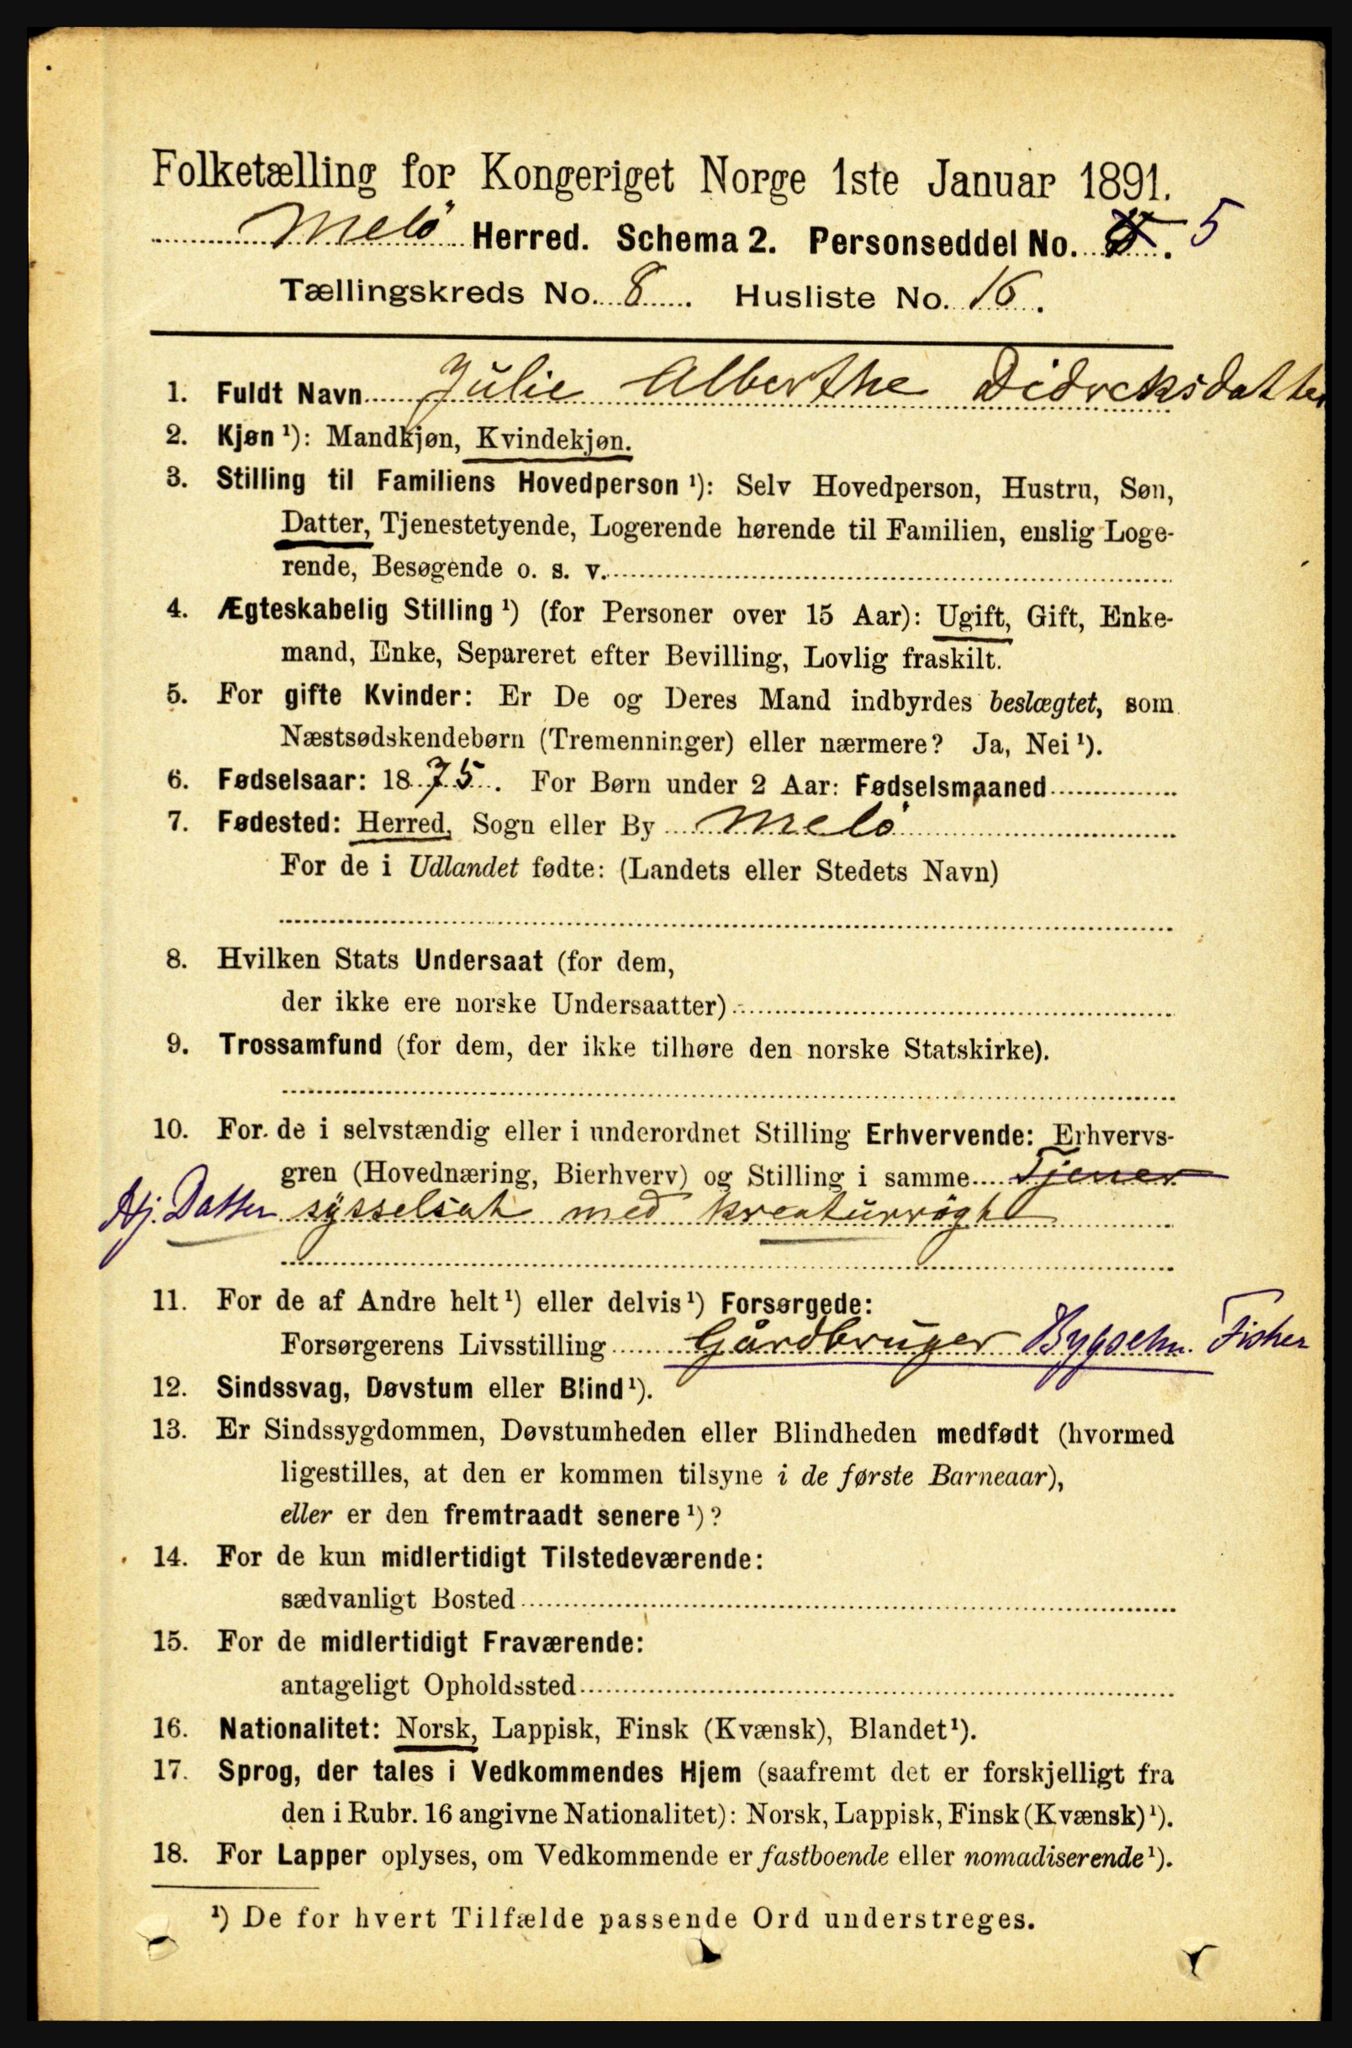 Folketælling for Kongeriget Norge 1ste Januar 1891.
Melö Herred. Schema 2. Personseddel No. 5
Tællingskreds No. 8. Husliste No. 16.
1. Fuldt Navn Julie Alberthe Didreksdatter
2. Kjøn ¹): Mandkjøn, Kvindekjøn.
3. Stilling til Familiens Hovedperson ¹): Selv Hovedperson, Hustru, Søn,
Datter, Tjenestetyende, Logerende hørende til Familien, enslig Loge-
rende, Besøgende o. s. v.
4. Ægteskabelig Stilling ¹) (for Personer over 15 Aar): Ugift, Gift, Enke-
mand, Enke, Separeret efter Bevilling, Lovlig fraskilt.
5. For gifte Kvinder: Er De og Deres Mand indbyrdes beslægtet, som
Næstsødskendebørn (Tremenninger) eller nærmere? Ja, Nei ¹).
6. Fødselsaar: 1875. For Børn under 2 Aar: Fødselsmaaned
7. Fødested: Herred, Sogn eller By Melö
For de i Udlandet fødte: (Landets eller Stedets Navn)
8. Hvilken Stats Undersaat (for dem,
der ikke ere norske Undersaatter)
9. Trossamfund (for dem, der ikke tilhøre den norske Statskirke).
10. For de i selvstændig eller i underordnet Stilling Erhvervende: Erhvervs-
gren (Hovednæring, Bierhverv) og Stilling i samme Tjener
Hj. Datter sysselsat med kreaturrögt
11. For de af Andre helt ¹) eller delvis ¹) Forsørgede:
Forsørgerens Livsstilling Gårdbruger Bygselm. Fisker
12. Sindssvag, Døvstum eller Blind ¹).
13. Er Sindssygdommen, Døvstumheden eller Blindheden medfødt (hvormed
ligestilles, at den er kommen tilsyne i de første Barneaar),
eller er den fremtraadt senere ¹)?
14. For de kun midlertidigt Tilstedeværende:
sædvanligt Bosted
15. For de midlertidigt Fraværende:
antageligt Opholdssted
16. Nationalitet: Norsk, Lappisk, Finsk (Kvænsk), Blandet ¹).
17. Sprog, der tales i Vedkommendes Hjem (saafremt det er forskjelligt fra
den i Rubr. 16 angivne Nationalitet): Norsk, Lappisk, Finsk (Kvænsk) ¹).
18. For Lapper oplyses, om Vedkommende er fastboende eller nomadiserende ¹).
¹) De for hvert Tilfælde passende Ord understreges.